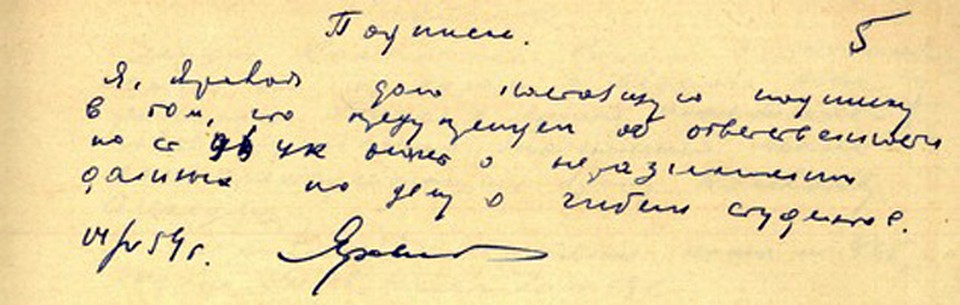 Подписка. 5
Я, Яровой даю настоящую подписку
в том, что предупрежден об ответственности
по ст 96 УК РСФСР о неразглашении
данных по делу о гибели студентов.
14/V 59г. Яровой